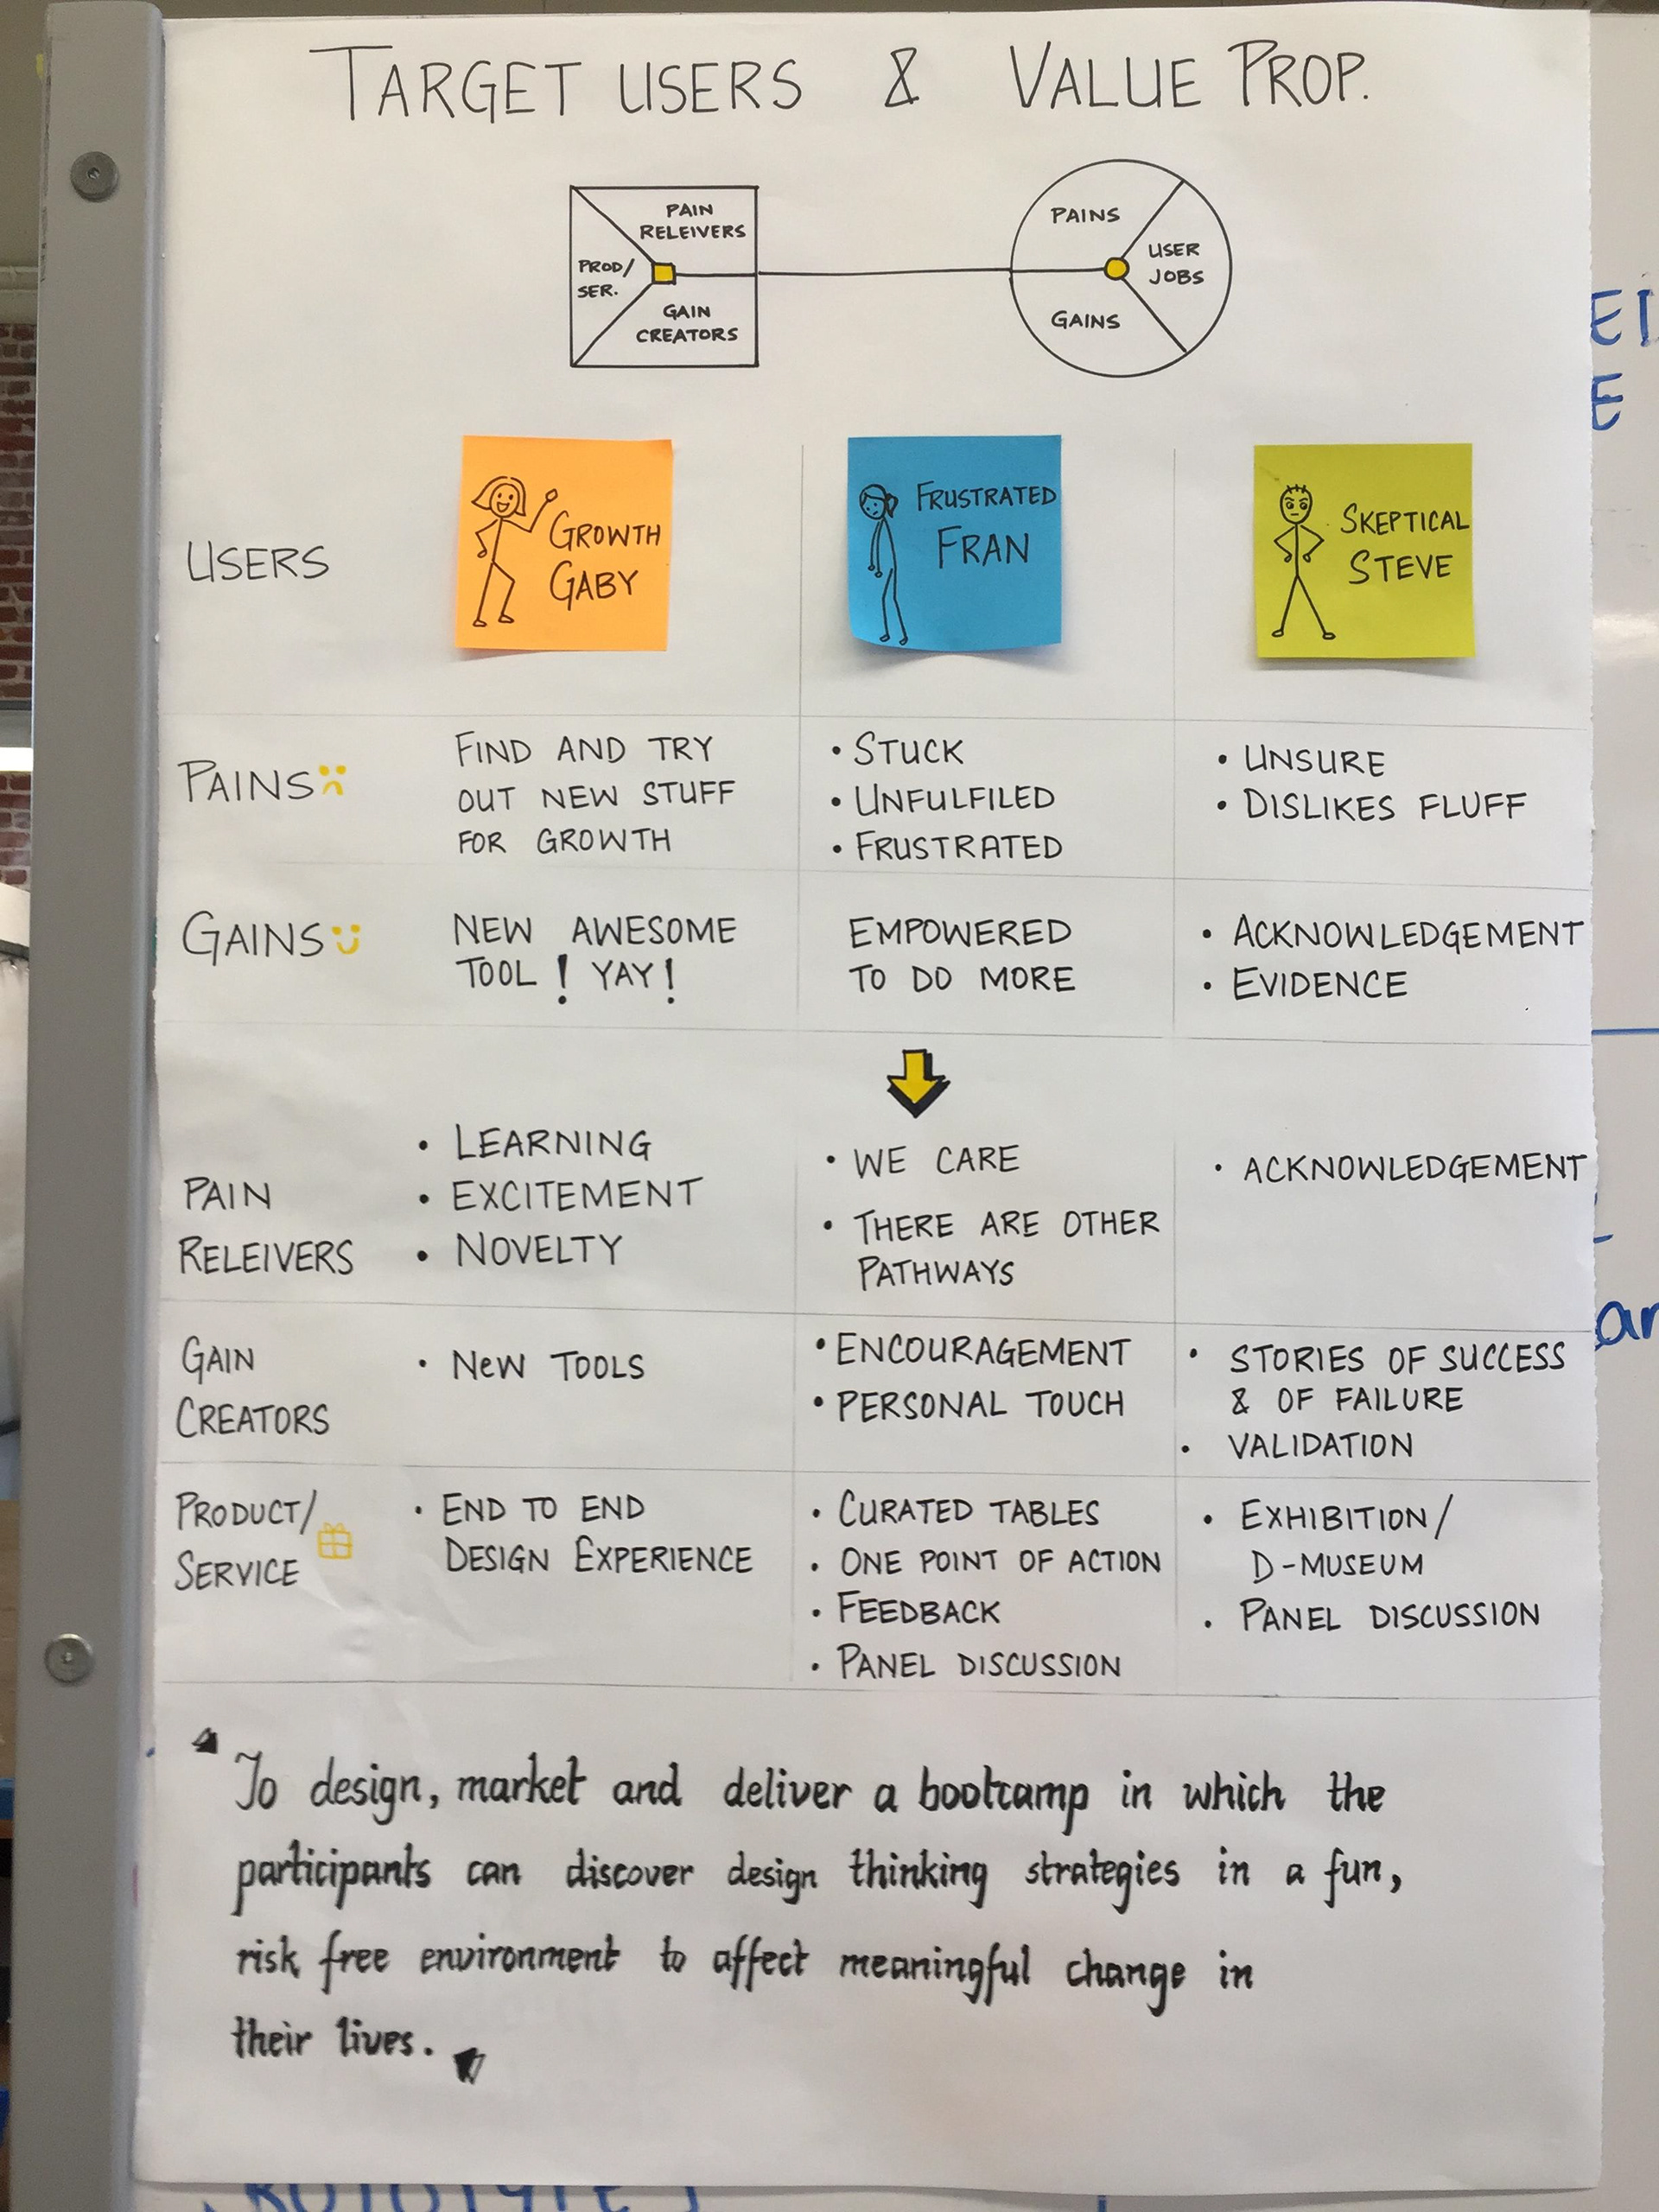 TARGET USERS & VALUE PROP.
PAIN
RELEIVERS
PROD/
SER.
GAIN
CREATORS
PAINS
USER
JOBS
GAINS
USERS
GROWTH
GABY
FRUSTRATED
FRAN
SKEPTICAL
STEVE
PAINS
FIND AND TRY
OUT NEW STUFF
FOR GROWTH
• STUCK
• UNFULFILED
• FRUSTRATED
• UNSURE
• DISLIKES FLUFF
GAINS
NEW AWESOME
TOOL! YAY!
EMPOWERED
TO DO MORE
• ACKNOWLEDGEMENT
• EVIDENCE
PAIN
RELEIVERS
• LEARNING
• EXCITEMENT
• NOVELTY
• WE CARE
• THERE ARE OTHER
PATHWAYS
• ACKNOWLEDGEMENT
GAIN
CREATORS
• NEW TOOLS
• ENCOURAGEMENT
• PERSONAL TOUCH
• STORIES OF SUCCESS
& OF FAILURE
• VALIDATION
PRODUCT/
SERVICE
• END TO END
DESIGN EXPERIENCE
• CURATED TABLES
• ONE POINT OF ACTION
• FEEDBACK
• PANEL DISCUSSION
• EXHIBITION/
D-MUSEUM
• PANEL DISCUSSION
"To design, market and deliver a bootcamp in which the
participants can discover design thinking strategies in a fun,
risk free environment to affect meaningful change in
their lives."